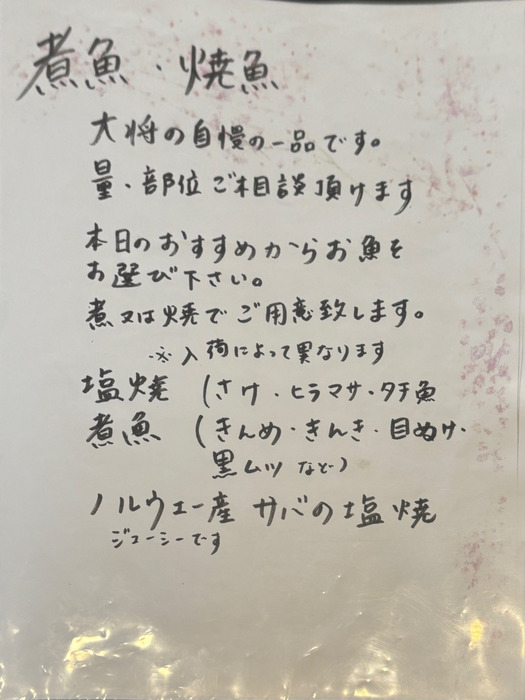 煮魚・焼魚
大将の自慢の一品です。
量・部位ご相談頂けます
本日のおすすめからお魚を
お選び下さい。
煮又は焼でご用意致します。
※入荷によって異なります
塩焼 (さけ・ヒラマサ・タチ魚
煮魚 (きんめ・きんき・目ぬけ・
黒ムツ など)
ノルウェー産 サバの塩焼
ジューシーです